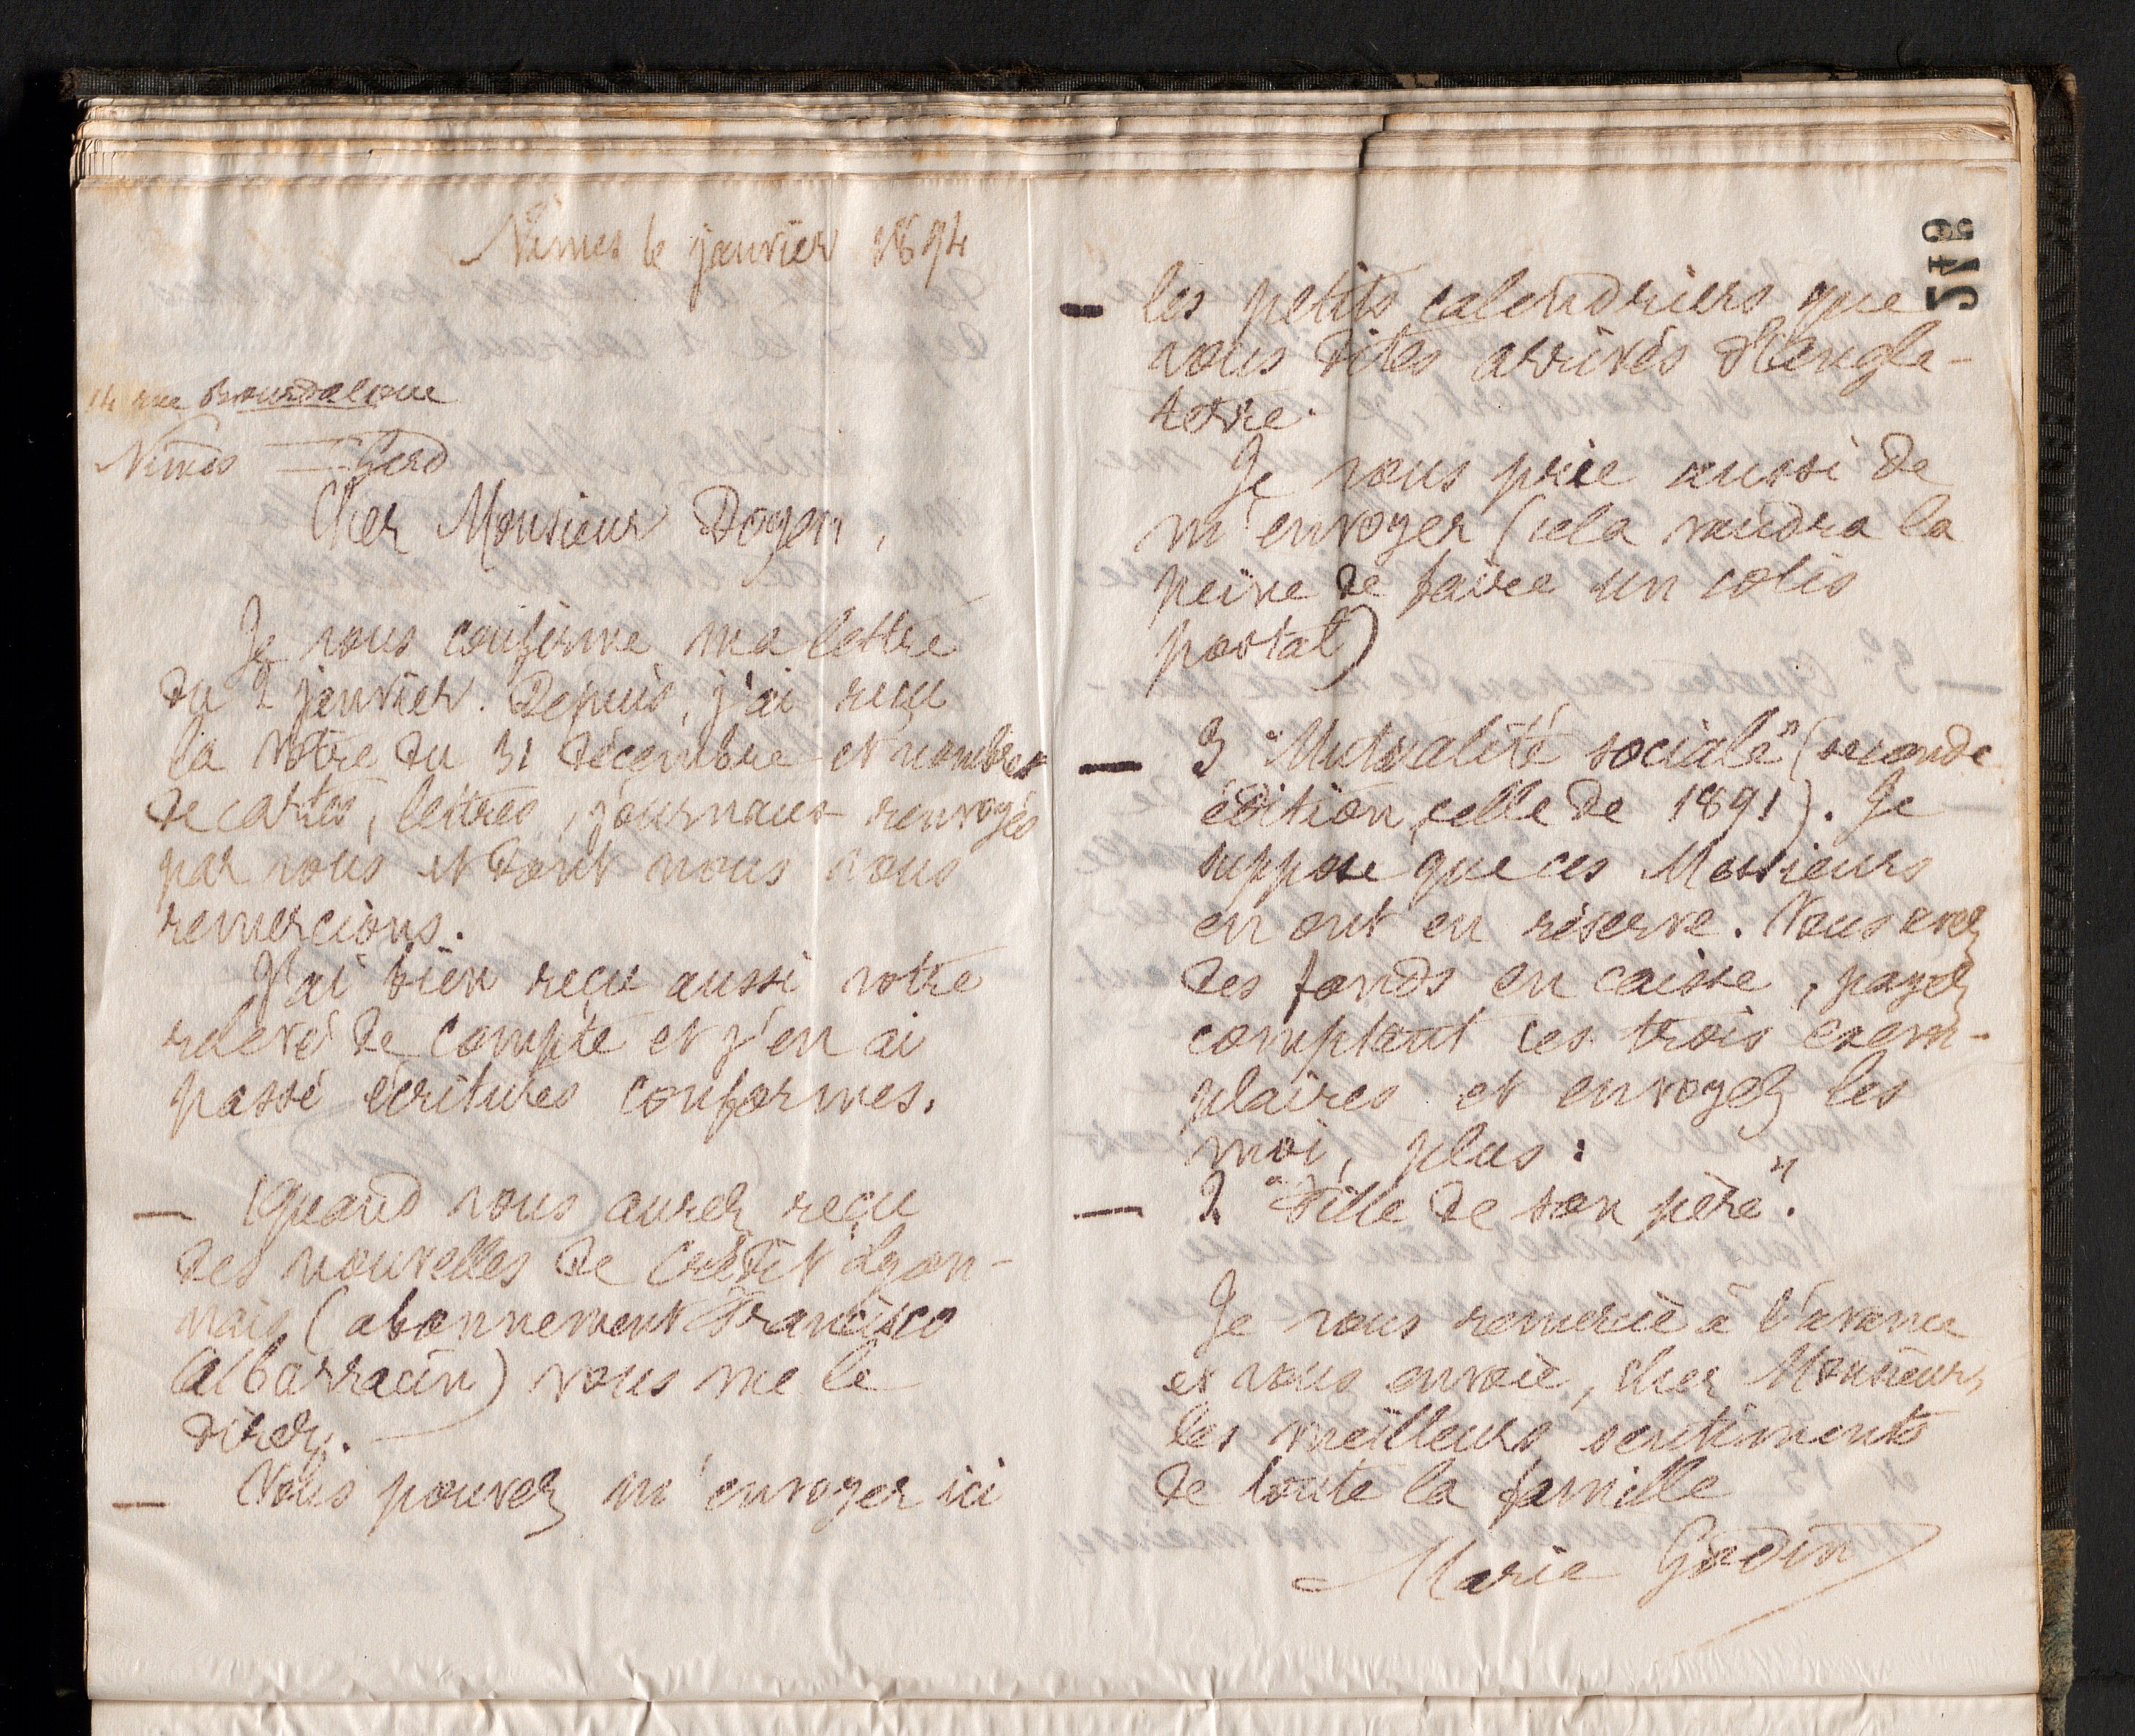 Nimes le janvier 1894
14 rue Bourdaloue
Nimes – Gard
Cher Monsieur Doyen,
Je vous confirme ma lettre
du 2 janvier. Depuis, j'ai reçu
la vôtre du 31 décembre et nombre
de cartes, lettres, journaux renvoyés
par vous et dont nous vous
remercions.
J'ai bien reçu aussi votre
relevé de compte et j'en ai
passé écritures conformes.
— Quand vous aurez reçu
des nouvelles de Crédit Lyon-
nais (abonnement Francisco
Albarracin) vous me le
direz.
— Vous pouvez m'envoyer ici
— les petits calendriers que
vous dites arrivés d'Angle-
terre.
Je vous prie aussi de
m'envoyer (cela vaudra la
peine de faire un colis
postal)
— 3 "Mutualité sociale" (seconde
édition, celle de 1891). Je
suppose que ces Messieurs
en ont en réserve. Vous avez
des fonds en caisse, payez
comptant ces trois exem-
plaires et envoyez les
moi, plus :
— 2 "Fille de son père".
Je vous remercie à l'avance
et vous envoie, cher Monsieur,
les meilleurs sentiments
de toute la famille
Marie Godin